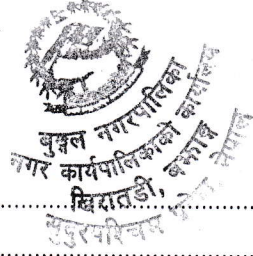 बुङ्गल नगरपालिका
नगर कार्यपालिकाको कार्यालय
खिरातडी, बझाङ
सुदुरपश्चिम प्रदेश, नेपाल